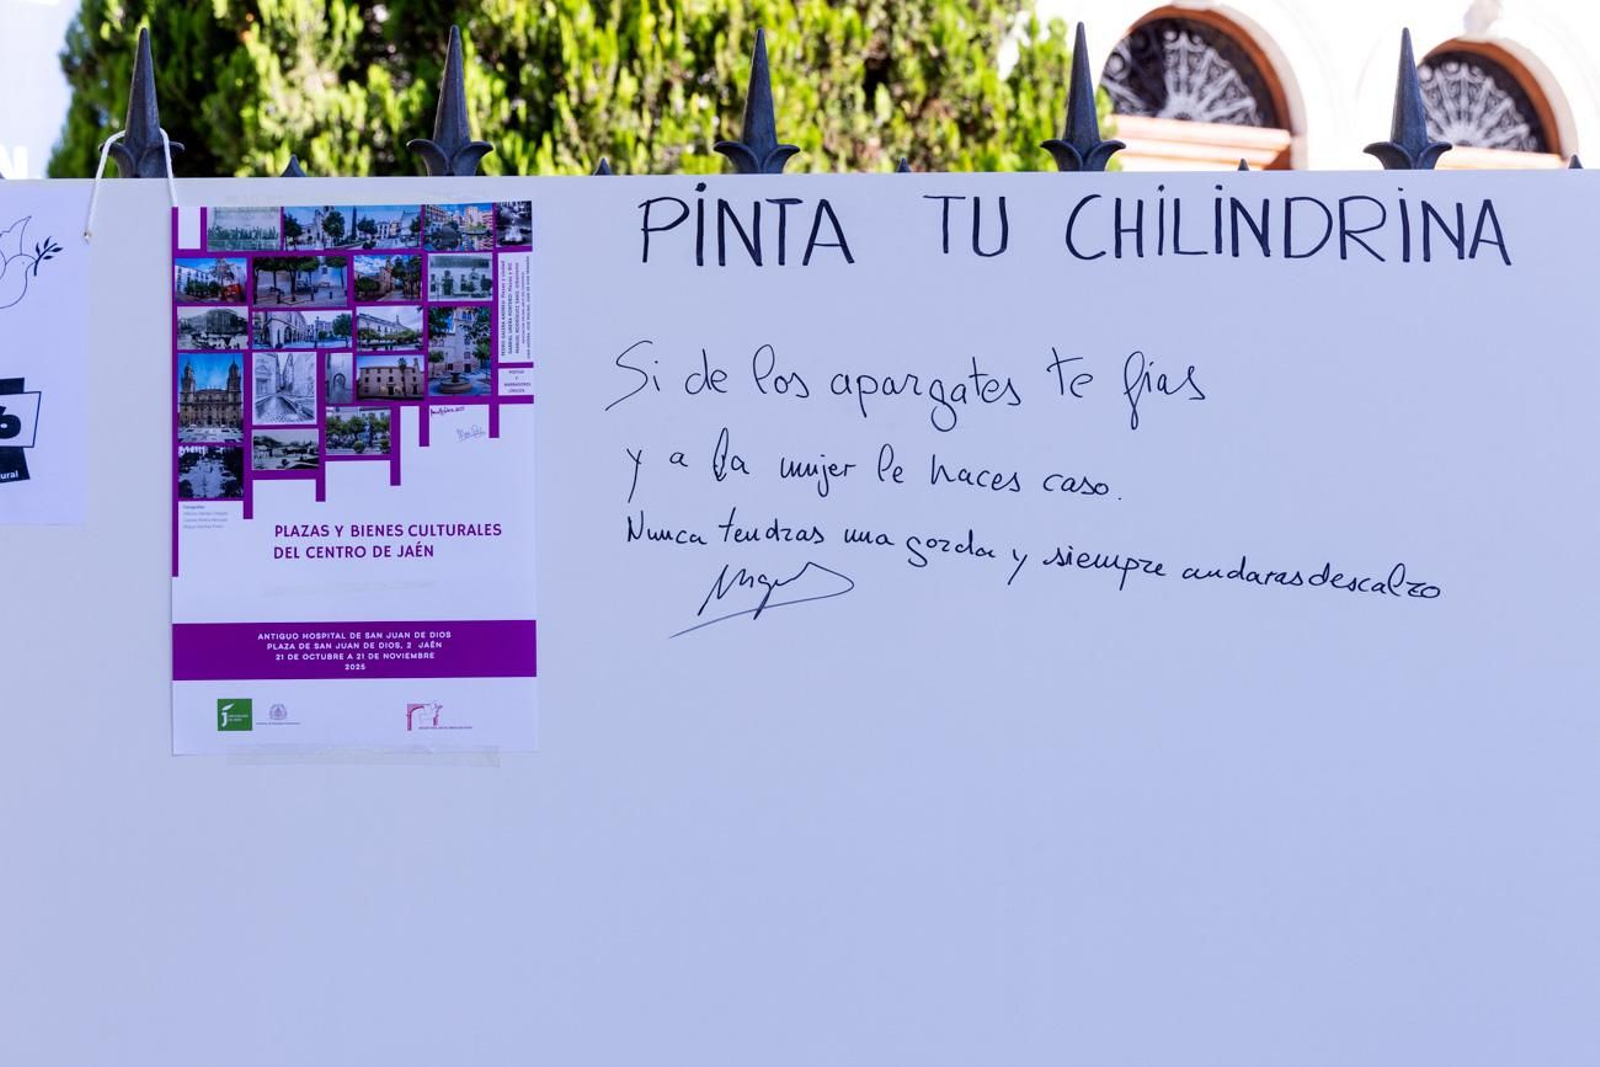 N
6
ural
PLAZAS Y BIENES CULTURALES
DEL CENTRO DE JAÉN
ANTIGUO HOSPITAL DE SAN JUAN DE DIOS
PLAZA DE SAN JUAN DE DIOS, 2 JAÉN
21 DE OCTUBRE A 21 DE NOVIEMBRE
2025
PINTA TU CHILINDRINA
Si de los apargates te fias
y a la mujer le haces caso.
Nunca tendras una gorda y siempre andaras descalzo